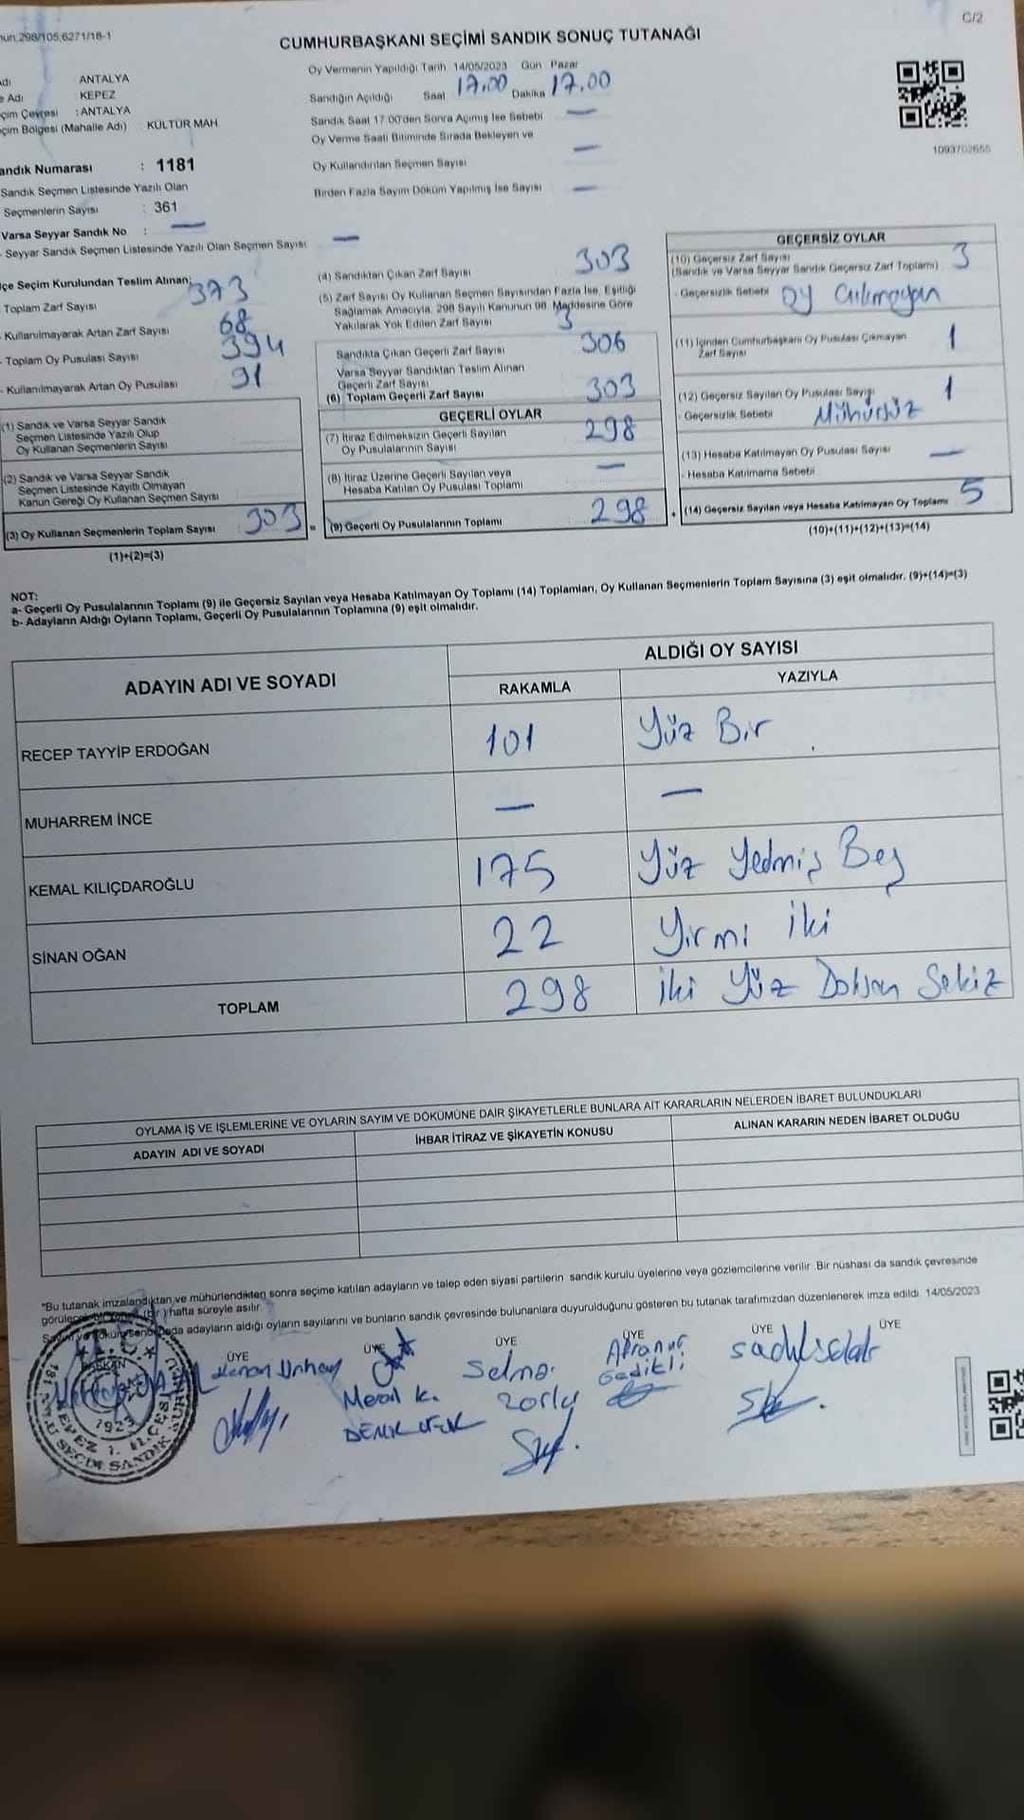 298/105;6271/18-1
C/2
CUMHURBAŞKANI SEÇİMİ SANDIK SONUÇ TUTANAĞI
ANTALYA
Adı KEPEZ
Çevresi : ANTALYA
Bölgesi (Mahalle Adı) KÜLTÜR MAH.
Oy Vermenin Yapıldığı Tarih 14/05/2023 Gün Pazar
Sandığın Açıldığı Saat 17.00 Dakika 17.00
Sandık Saat 17:00'den Sonra Açımış İse Sebebi —
Oy Verme Saati Bitiminde Sırada Bekleyen ve
Oy Kullandırılan Seçmen Sayısı —
Birden Fazla Sayım Döküm Yapılmış İse Sayısı —
1093702655
andık Numarası : 1181
Sandık Seçmen Listesinde Yazılı Olan
Seçmenlerin Sayısı : 361
Varsa Seyyar Sandık No : —
Seyyar Sandık Seçmen Listesinde Yazılı Olan Seçmen Sayısı —
lçe Seçim Kurulundan Teslim Alınan;
Toplam Zarf Sayısı 373
Kullanılmayarak Artan Zarf Sayısı 68
Toplam Oy Pusulası Sayısı 394
Kullanılmayarak Artan Oy Pusulası 91
(1) Sandık ve Varsa Seyyar Sandık
Seçmen Listesinde Yazılı Olup
Oy Kullanan Seçmenlerin Sayısı
(2) Sandık ve Varsa Seyyar Sandık
Seçmen Listesinde Kayıtlı Olmayan
Kanun Gereği Oy Kullanan Seçmen Sayısı
(3) Oy Kullanan Seçmenlerin Toplam Sayısı 303 =
(1)+(2)=(3)
(4) Sandıktan Çıkan Zarf Sayısı 303
(5) Zarf Sayısı Oy Kullanan Seçmen Sayısından Fazla İse, Eşitliği
Sağlamak Amacıyla, 298 Sayılı Kanunun 98. Maddesine Göre
Yakılarak Yok Edilen Zarf Sayısı 3
Sandıkta Çıkan Geçerli Zarf Sayısı 306
Varsa Seyyar Sandıktan Teslim Alınan
Geçerli Zarf Sayısı
(6) Toplam Geçerli Zarf Sayısı 303
GEÇERLİ OYLAR
(7) İtiraz Edilmeksizin Geçerli Sayılan
Oy Pusulalarının Sayısı 298
(8) İtiraz Üzerine Geçerli Sayılan veya
Hesaba Katılan Oy Pusulası Toplamı —
(9) Geçerli Oy Pusulalarının Toplamı 298 +
GEÇERSİZ OYLAR
(10) Geçersiz Zarf Sayısı 3
(Sandık ve Varsa Seyyar Sandık Geçersiz Zarf Toplamı)
- Geçersizlik Sebebi oy
(11) İçinden Cumhurbaşkanı Oy Pusulası Çıkmayan
Zarf Sayısı 1
(12) Geçersiz Sayılan Oy Pusulası Sayısı 1
- Geçersizlik Sebebi Mühürsüz
(13) Hesaba Katılmayan Oy Pusulası Sayısı —
- Hesaba Katılmama Sebebi
(14) Geçersiz Sayılan veya Hesaba Katılmayan Oy Toplamı 5
(10)+(11)+(12)+(13)=(14)
NOT:
a- Geçerli Oy Pusulalarının Toplamı (9) ile Geçersiz Sayılan veya Hesaba Katılmayan Oy Toplamı (14) Toplamları, Oy Kullanan Seçmenlerin Toplam Sayısına (3) eşit olmalıdır. (9)+(14)=(3)
b- Adayların Aldığı Oyların Toplamı, Geçerli Oy Pusulalarının Toplamına (9) eşit olmalıdır.
ADAYIN ADI VE SOYADI
ALDIĞI OY SAYISI
RAKAMLA YAZIYLA
RECEP TAYYİP ERDOĞAN 101 Yüz Bir
MUHARREM İNCE — —
KEMAL KILIÇDAROĞLU 175 Yüz Yedmiş Beş
SİNAN OĞAN 22 Yirmi İki
TOPLAM 298 İki Yüz Doksan Sekiz
OYLAMA İŞ VE İŞLEMLERİNE VE OYLARIN SAYIM VE DÖKÜMÜNE DAİR ŞİKAYETLERLE BUNLARA AİT KARARLARIN NELERDEN İBARET BULUNDUKLARI
ADAYIN ADI VE SOYADI İHBAR İTİRAZ VE ŞİKAYETİN KONUSU ALINAN KARARIN NEDEN İBARET OLDUĞU
*Bu tutanak imzalandıktan ve mühürlendikten sonra seçime katılan adayların ve talep eden siyasi partilerin sandık kurulu üyelerine veya gözlemcilerine verilir .Bir nüshası da sandık çevresinde
görülecek bir (bir ) hafta süreyle asılır.
adayların aldığı oyların sayılarını ve bunların sandık çevresinde bulunanlara duyurulduğunu gösteren bu tutanak tarafımızdan düzenlenerek imza edildi. 14/05/2023
BAŞKAN ÜYE ÜYE ÜYE ÜYE ÜYE ÜYE
Kenan
Meral K.
Selma
Zorlu
Gedikli
1923
KEPEZ 1. İLÇESİ